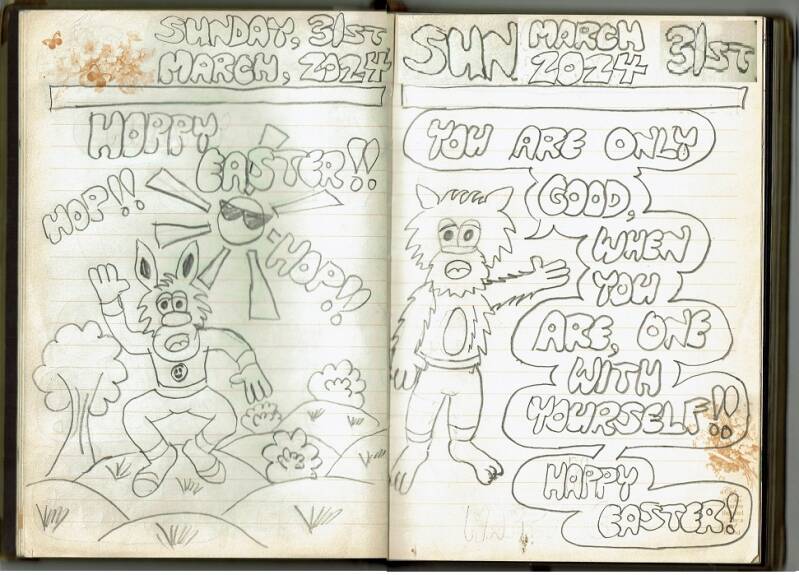 SUNDAY, 31ST
MARCH, 2024
HOPPY
EASTER!!
HOP!!
HOP!!
SUN MARCH 2024 31ST
YOU ARE ONLY
GOOD,
WHEN
YOU
ARE, ONE
WITH
YOURSELF!!
HAPPY
EASTER!